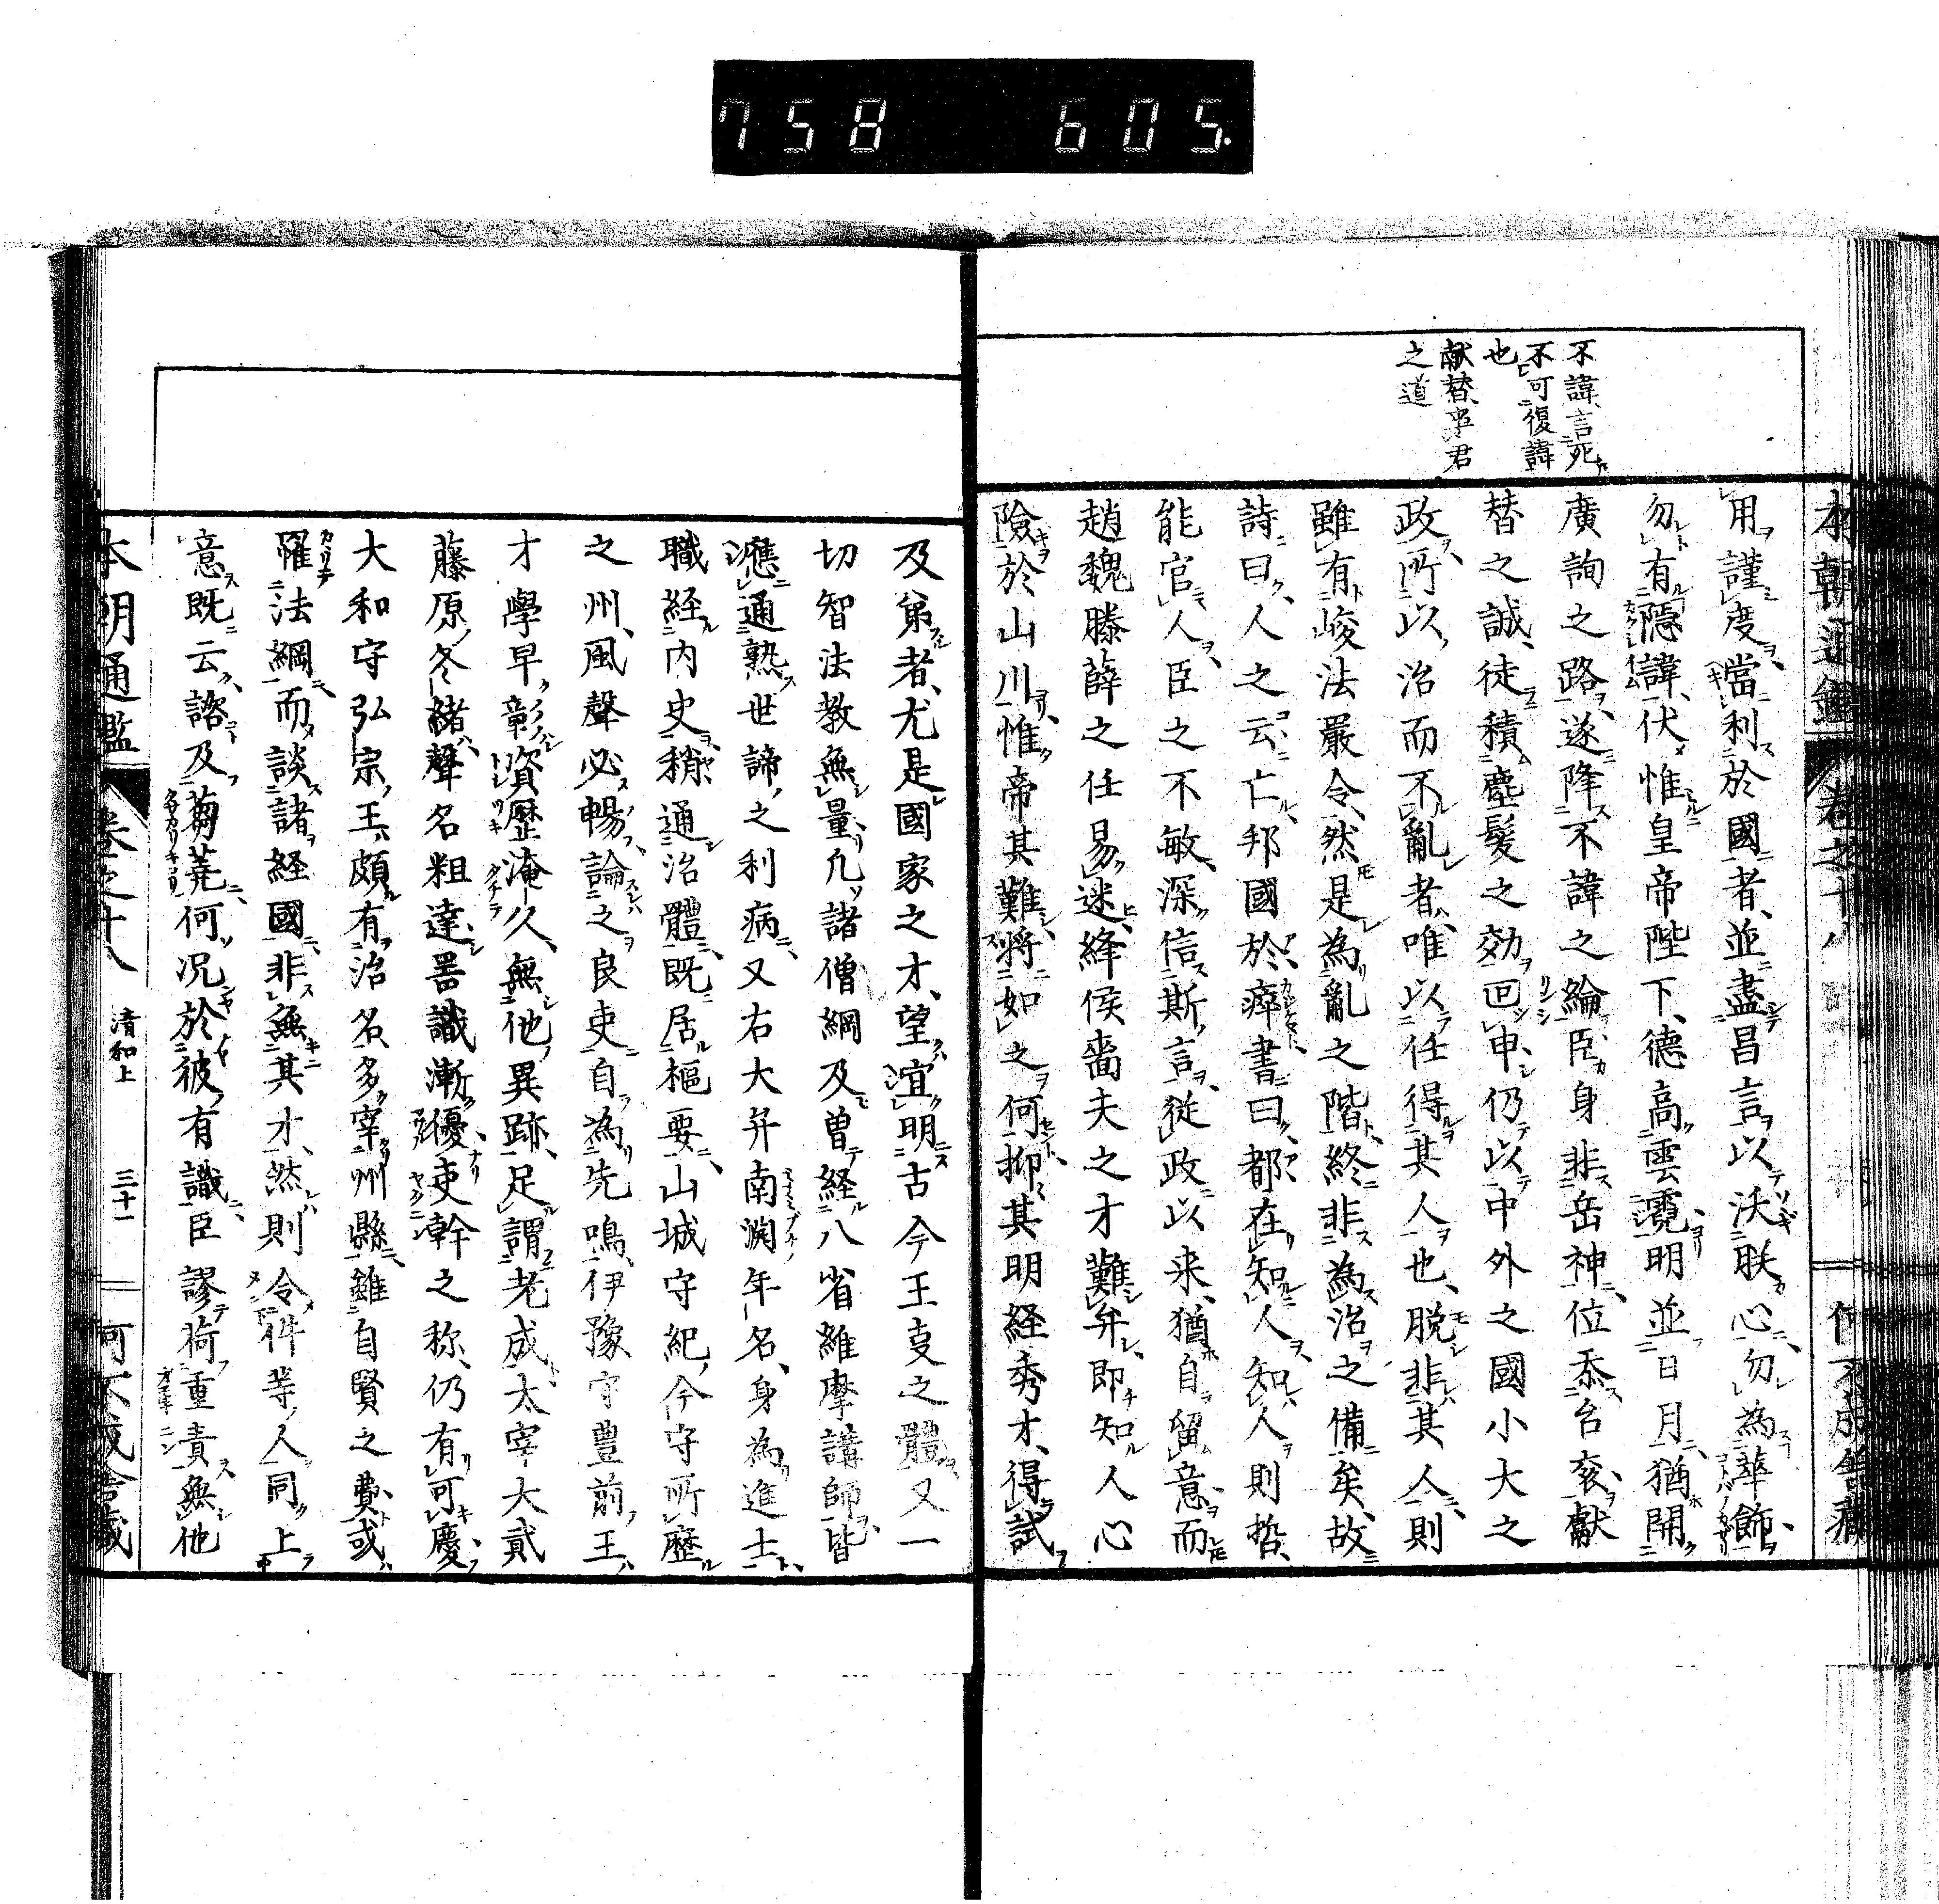 758 605.
本朝通鑑 卷之十八
不諱言死
不可復諱
也
献替事君
之道
用謹度當利於國者並盡昌言以沃朕心勿為華飾
勿有隱諱伏惟皇帝陛下德高雲霓明並日月猶開
廣詢之路遂降不諱之綸臣身非岳神位忝台袞獻
替之誠徒積塵髮之効叵申仍以中外之國小大之
政所以治而不亂者唯以任得其人也脱非其人則
雖有峻法嚴令然是為亂之階終非為治之備矣故
詩曰人之云亡邦國於瘁書曰都在知人知人則哲
能官人臣之不敏深信斯言從政以来猶自留意而
趙魏滕薛之任易迷絳侯嗇夫之才難弁即知人心
險於山川惟帝其難将如之何抑其明経秀才得試
及苐者尤是國家之才望宜明古今王㕝之體又一
切智法教無量凢諸僧綱及曽経八省維摩講師皆
應通熟世諦之利病又右大弁南渕年名身為進士
職経内史稍通治體既居樞要山城守紀今守所歷
之州風聲必暢論之良吏自為先鳴伊豫守豊前王
才學早彰資歷淹久無他異跡足謂老成太宰大貳
藤原冬緒聲名粗達噐識漸優吏幹之称仍有可慶
大和守弘宗王頗有治名多宰州縣雖自賢之費或
罹法網而談諸経國非無其才然則令件等人同上
意既云諮及蒭蕘何况於彼有識臣謬荷重責無他
本朝通鑑 卷之十八 清和上 三十一 何不成舎藏